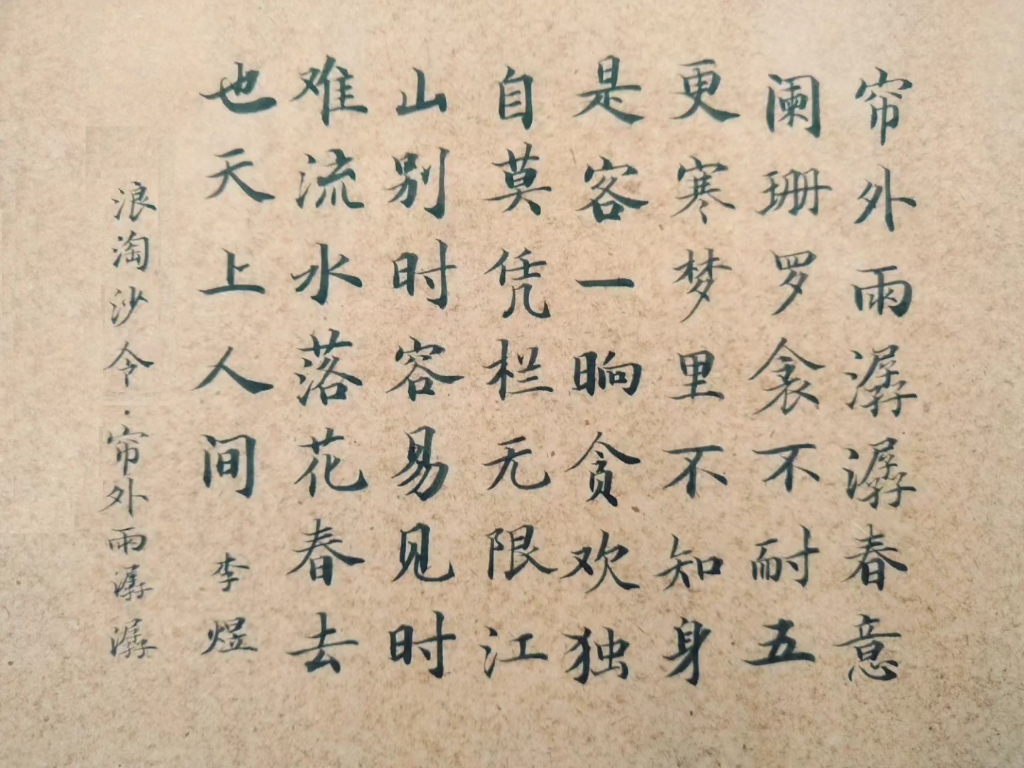 帘外雨潺潺春意
阑珊罗衾不耐五
更寒梦里不知身
是客一晌贪欢独
自莫凭栏无限江
山别时容易见时
难流水落花春去
也天上人间 李煜
浪淘沙令·帘外雨潺潺